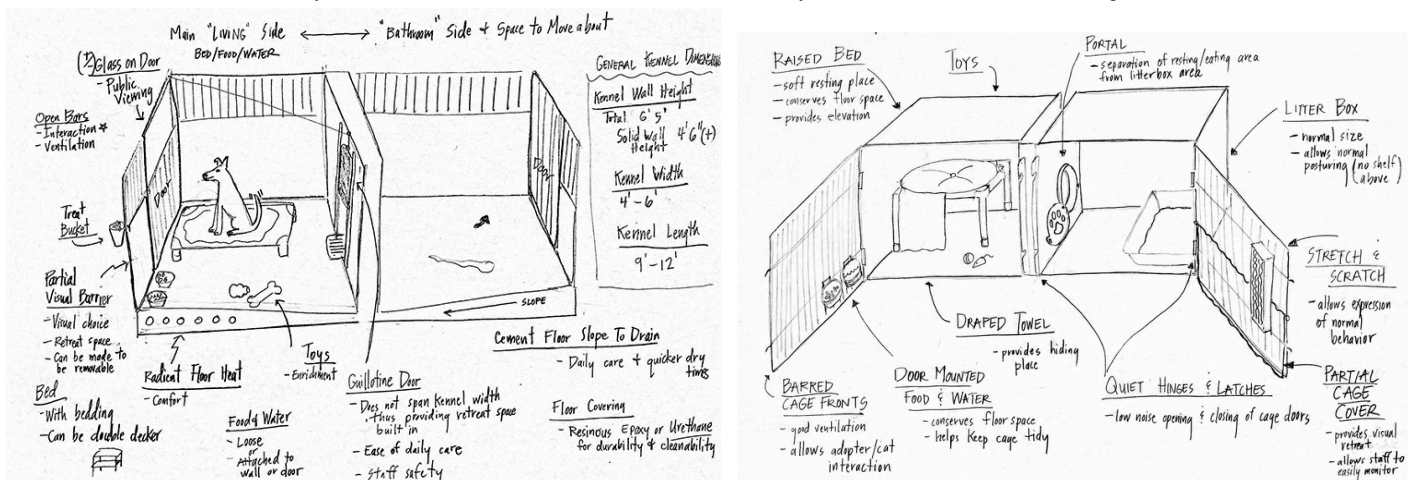 Main "LIVING" Side ⟷ "Bathroom" Side + Space to Move about
BED/FOOD/WATER
(½) Glass on Door
- Public
Viewing
Open Bars
- Interaction *
- Ventilation
Treat
Bucket
Partial
Visual Barrier
- Visual choice
- Retreat space
- Can be made to
be removable
Bed
- With bedding
- Can be double decker
Radient Floor Heat
- Comfort
Toys
- Enrichment
Food & Water
- Loose
or
- Attached to
wall or door
Guillotine Door
- Does not span kennel width
thus providing retreat space
built in
- Ease of daily care
- Staff safety
DOOR
DOOR
SLOPE
Cement Floor Slope To Drain
- Daily care + quicker dry
time
Floor Covering
- Resinous Epoxy or Urethane
for durability & cleanability
GENERAL KENNEL DIMENSIONS
Kennel Wall Height
Total 6' 5"
Solid Wall 4'6"(+)
Height
Kennel Width
4' - 6'
Kennel Length
9' - 12'
RAISED BED
- soft resting place
- conserves floor space
- provides elevation
TOYS
PORTAL
- separation of resting/eating area
from litterbox area
LITTER BOX
- normal size
- allows normal
posturing (no shelf
above)
STRETCH &
SCRATCH
- allows expression
of normal
behavior
PARTIAL
CAGE
COVER
- provides visual
retreat
- allows staff to
easily monitor
DRAPED TOWEL
- provides hiding
place
BARRED
CAGE FRONTS
- good ventilation
- allows adopter/cat
interaction
DOOR MOUNTED
FOOD & WATER
- conserves floor space
- helps keep cage tidy
QUIET HINGES & LATCHES
- low noise opening & closing of cage doors